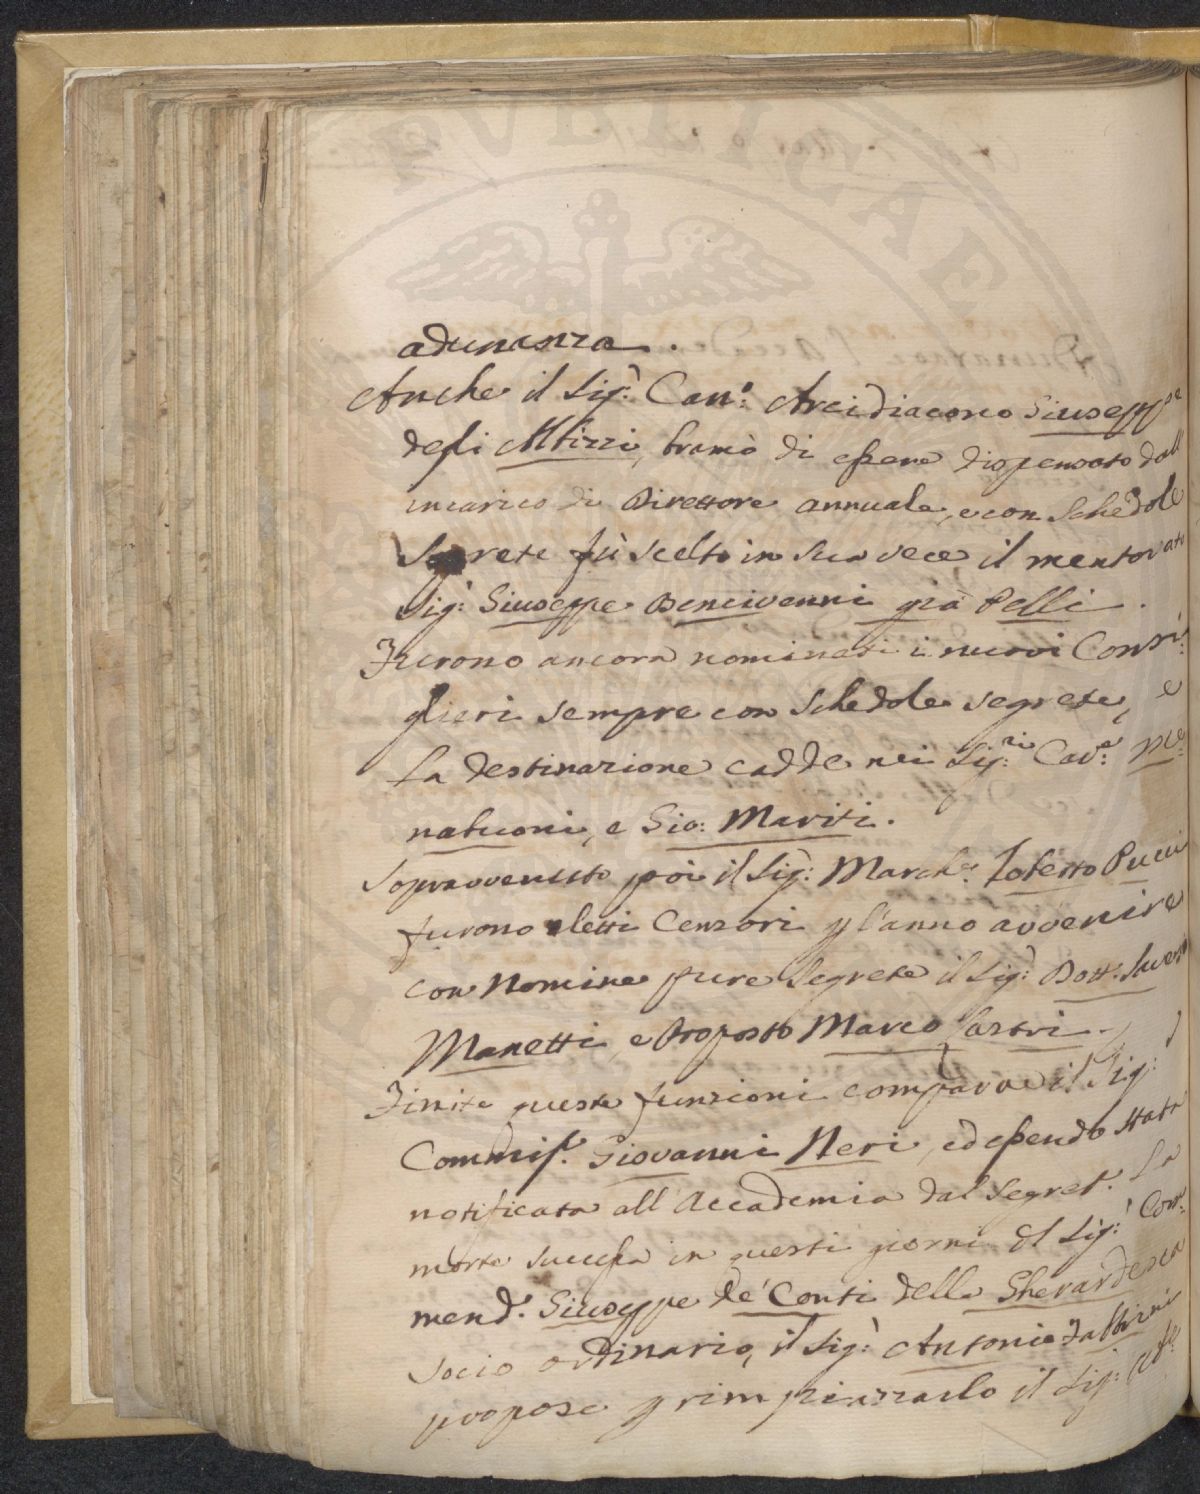 PVBLICAE
adunanza.
Anche il Sig.r Can.o Arcidiacono Giuseppe
degli Albizzi, bramò di essere dispensato dall'
incarico di Direttore annuale, e con Schedole
Segrete fù scelto in sua vece il mentovato
Sig.r Giuseppe Bencivenni già Pelli.
Furono ancora nominati i nuovi Consi:
glieri sempre con Schedole segrete, e
la destinazione cadde nei Sig.ri Cav.e Me:
nabuoni, e Gio: Mariti.
Sopravvenuto poi il Sig.r March.e Roberto Pucci
furono eletti Censori p l'anno avvenire
con Nomine pure Segrete il Sig.r Dott.
Manetti, e Proposto Marco Lastri.
Finite queste funzioni comparve il Sig.r
Commiss. Giovanni Neri, ed essendo stata
notificata all'Accademia dal Segret. la
morte successa in questi giorni del Sig.r Com:
mend.r Giuseppe de' Conti della Gherardesca
socio ordinario, il Sig.r Antonio Fabbrini
propose p rimpiazzarlo il Sig.r